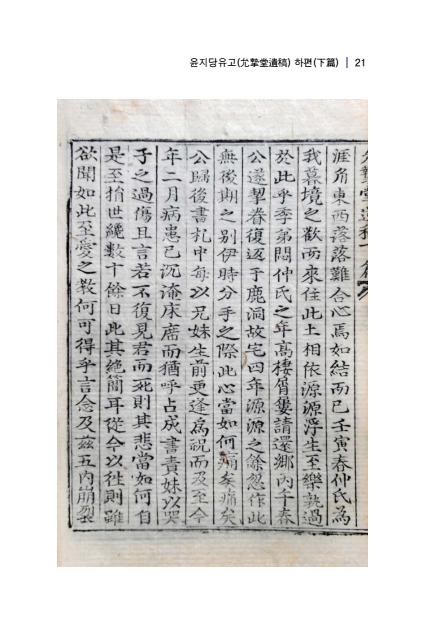 윤지당유고(允摯堂遺稿) 하편(下篇) | 21
涯角東西落落難合心焉如結而已壬寅春仲氏為
我暮境之歡而來住此土相依源源浮生至樂孰過
於此乎季弟悶仲氏之年高棲屑屢請還鄉丙午春
公遂挈眷復返于鹿洞故宅四年源源之餘忽作此
無後期之别伊時分手之際此心當如何痛矣痛矣
公歸後書札中每以兄妹生前更逢為祝而及至今
年二月病患已沉淹床席而猶呼占成書責妹以哭
子之過傷且言若不復見君而死則其悲當如何自
是至捐世纔數十餘日此其絶簡耳從今以徃則雖
欲聞如此至愛之教何可得乎言念及玆五内崩裂